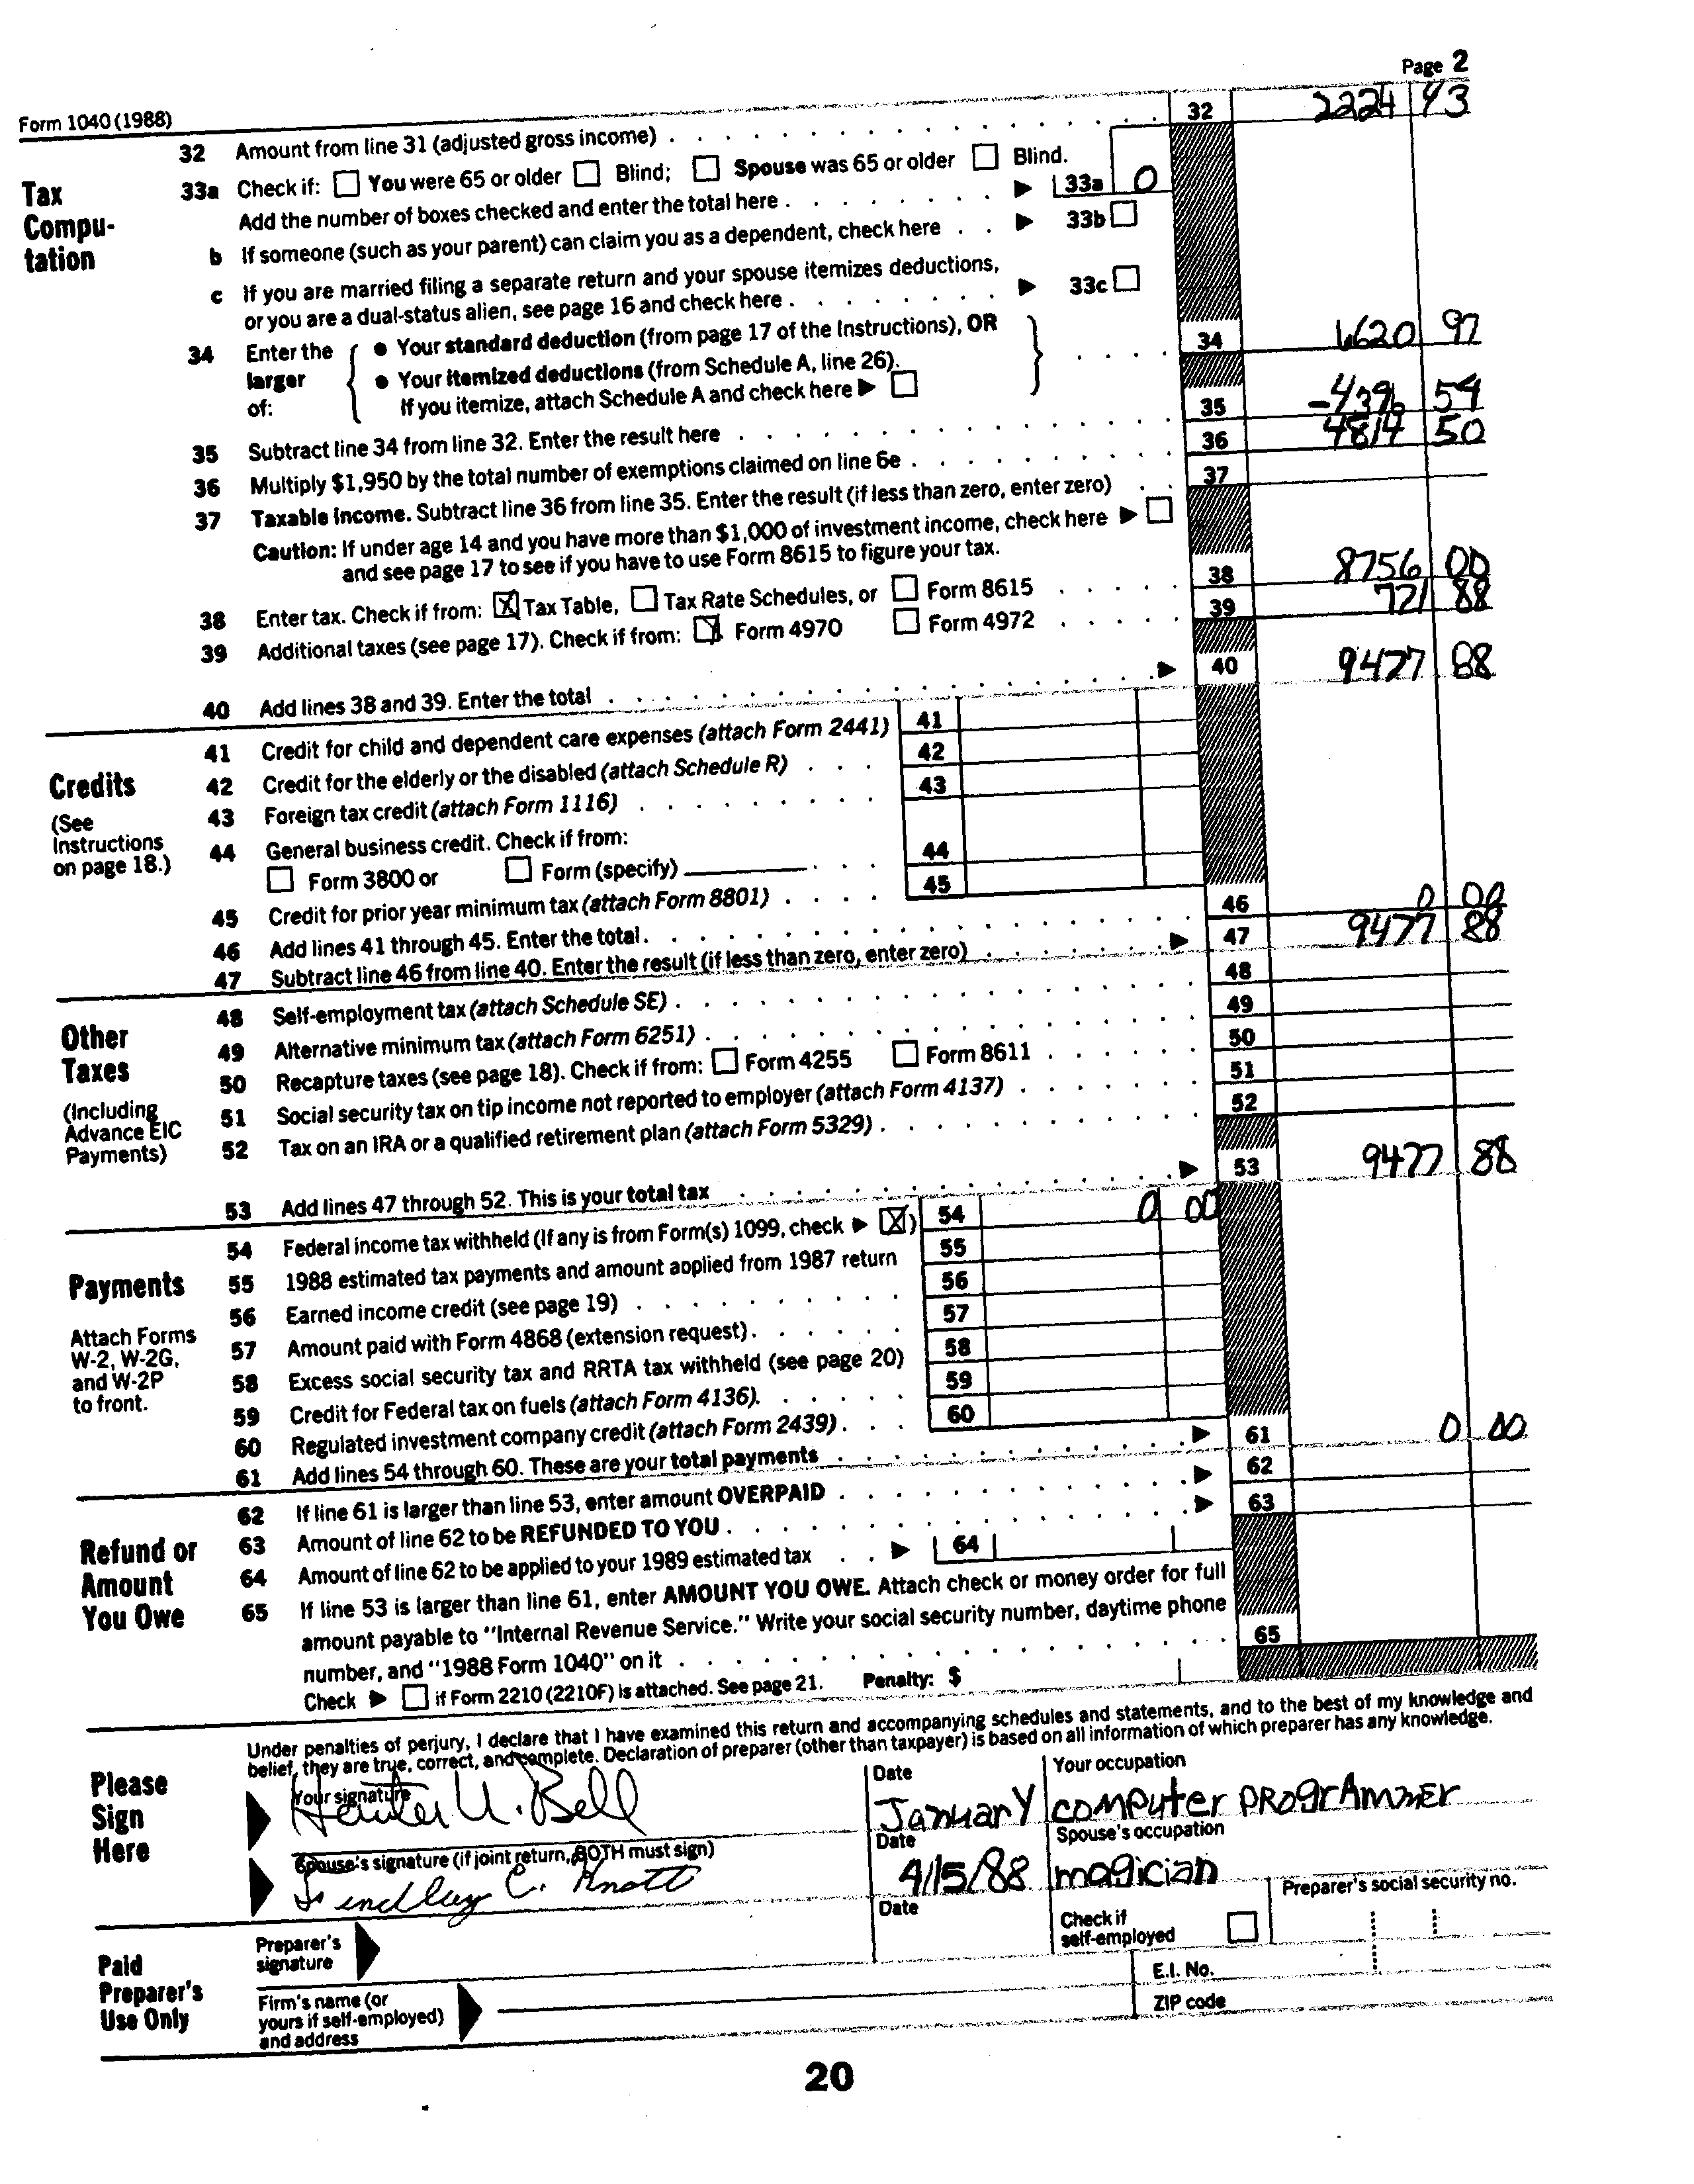 Page 2
Form 1040 (1988)
32 Amount from line 31 (adjusted gross income) 32 2224 43
Tax Compu- tation
33a Check if: You were 65 or older Blind; Spouse was 65 or older Blind.
Add the number of boxes checked and enter the total here 33a 0
b If someone (such as your parent) can claim you as a dependent, check here 33b
c If you are married filing a separate return and your spouse itemizes deductions,
or you are a dual-status alien, see page 16 and check here 33c
34 Enter the larger of:
• Your standard deduction (from page 17 of the Instructions), OR
• Your itemized deductions (from Schedule A, line 26).
If you itemize, attach Schedule A and check here
34 6620 97
35 Subtract line 34 from line 32. Enter the result here 35 -4396 54
36 Multiply $1,950 by the total number of exemptions claimed on line 6e 36 4814 50
37 Taxable income. Subtract line 36 from line 35. Enter the result (if less than zero, enter zero) 37
Caution: If under age 14 and you have more than $1,000 of investment income, check here
and see page 17 to see if you have to use Form 8615 to figure your tax.
38 Enter tax. Check if from: X Tax Table, Tax Rate Schedules, or Form 8615 38 8756 00
39 Additional taxes (see page 17). Check if from: X Form 4970 Form 4972 39 721 88
40 Add lines 38 and 39. Enter the total 40 9477 88
Credits
(See Instructions on page 18.)
41 Credit for child and dependent care expenses (attach Form 2441) 41
42 Credit for the elderly or the disabled (attach Schedule R) 42
43 Foreign tax credit (attach Form 1116) 43
44 General business credit. Check if from:
Form 3800 or Form (specify) 44
45 Credit for prior year minimum tax (attach Form 8801) 45
46 Add lines 41 through 45. Enter the total 46 0 00
47 Subtract line 46 from line 40. Enter the result (if less than zero, enter zero) 47 9477 88
Other Taxes
(Including Advance EIC Payments)
48 Self-employment tax (attach Schedule SE) 48
49 Alternative minimum tax (attach Form 6251) 49
50 Recapture taxes (see page 18). Check if from: Form 4255 Form 8611 50
51 Social security tax on tip income not reported to employer (attach Form 4137) 51
52 Tax on an IRA or a qualified retirement plan (attach Form 5329) 52
53 Add lines 47 through 52. This is your total tax 53 9477 88
Payments
Attach Forms W-2, W-2G, and W-2P to front.
54 Federal income tax withheld (If any is from Form(s) 1099, check X) 54 0 00
55 1988 estimated tax payments and amount applied from 1987 return 55
56 Earned income credit (see page 19) 56
57 Amount paid with Form 4868 (extension request) 57
58 Excess social security tax and RRTA tax withheld (see page 20) 58
59 Credit for Federal tax on fuels (attach Form 4136) 59
60 Regulated investment company credit (attach Form 2439) 60
61 Add lines 54 through 60. These are your total payments 61 0 00
Refund or Amount You Owe
62 If line 61 is larger than line 53, enter amount OVERPAID 62
63 Amount of line 62 to be REFUNDED TO YOU 63
64 Amount of line 62 to be applied to your 1989 estimated tax 64
65 If line 53 is larger than line 61, enter AMOUNT YOU OWE. Attach check or money order for full
amount payable to "Internal Revenue Service." Write your social security number, daytime phone
number, and "1988 Form 1040" on it 65
Check if Form 2210 (2210F) is attached. See page 21. Penalty: $
Please Sign Here
Under penalties of perjury, I declare that I have examined this return and accompanying schedules and statements, and to the best of my knowledge and
belief, they are true, correct, and complete. Declaration of preparer (other than taxpayer) is based on all information of which preparer has any knowledge.
Your signature Date Your occupation
U. Bell January computer PROgrAmmEr
Spouse's signature (if joint return, BOTH must sign) Date Spouse's occupation
C. Knott 4/15/88 magician
Paid Preparer's Use Only
Preparer's signature Date Check if self-employed Preparer's social security no.
Firm's name (or yours if self-employed) and address
E.I. No.
ZIP code
20